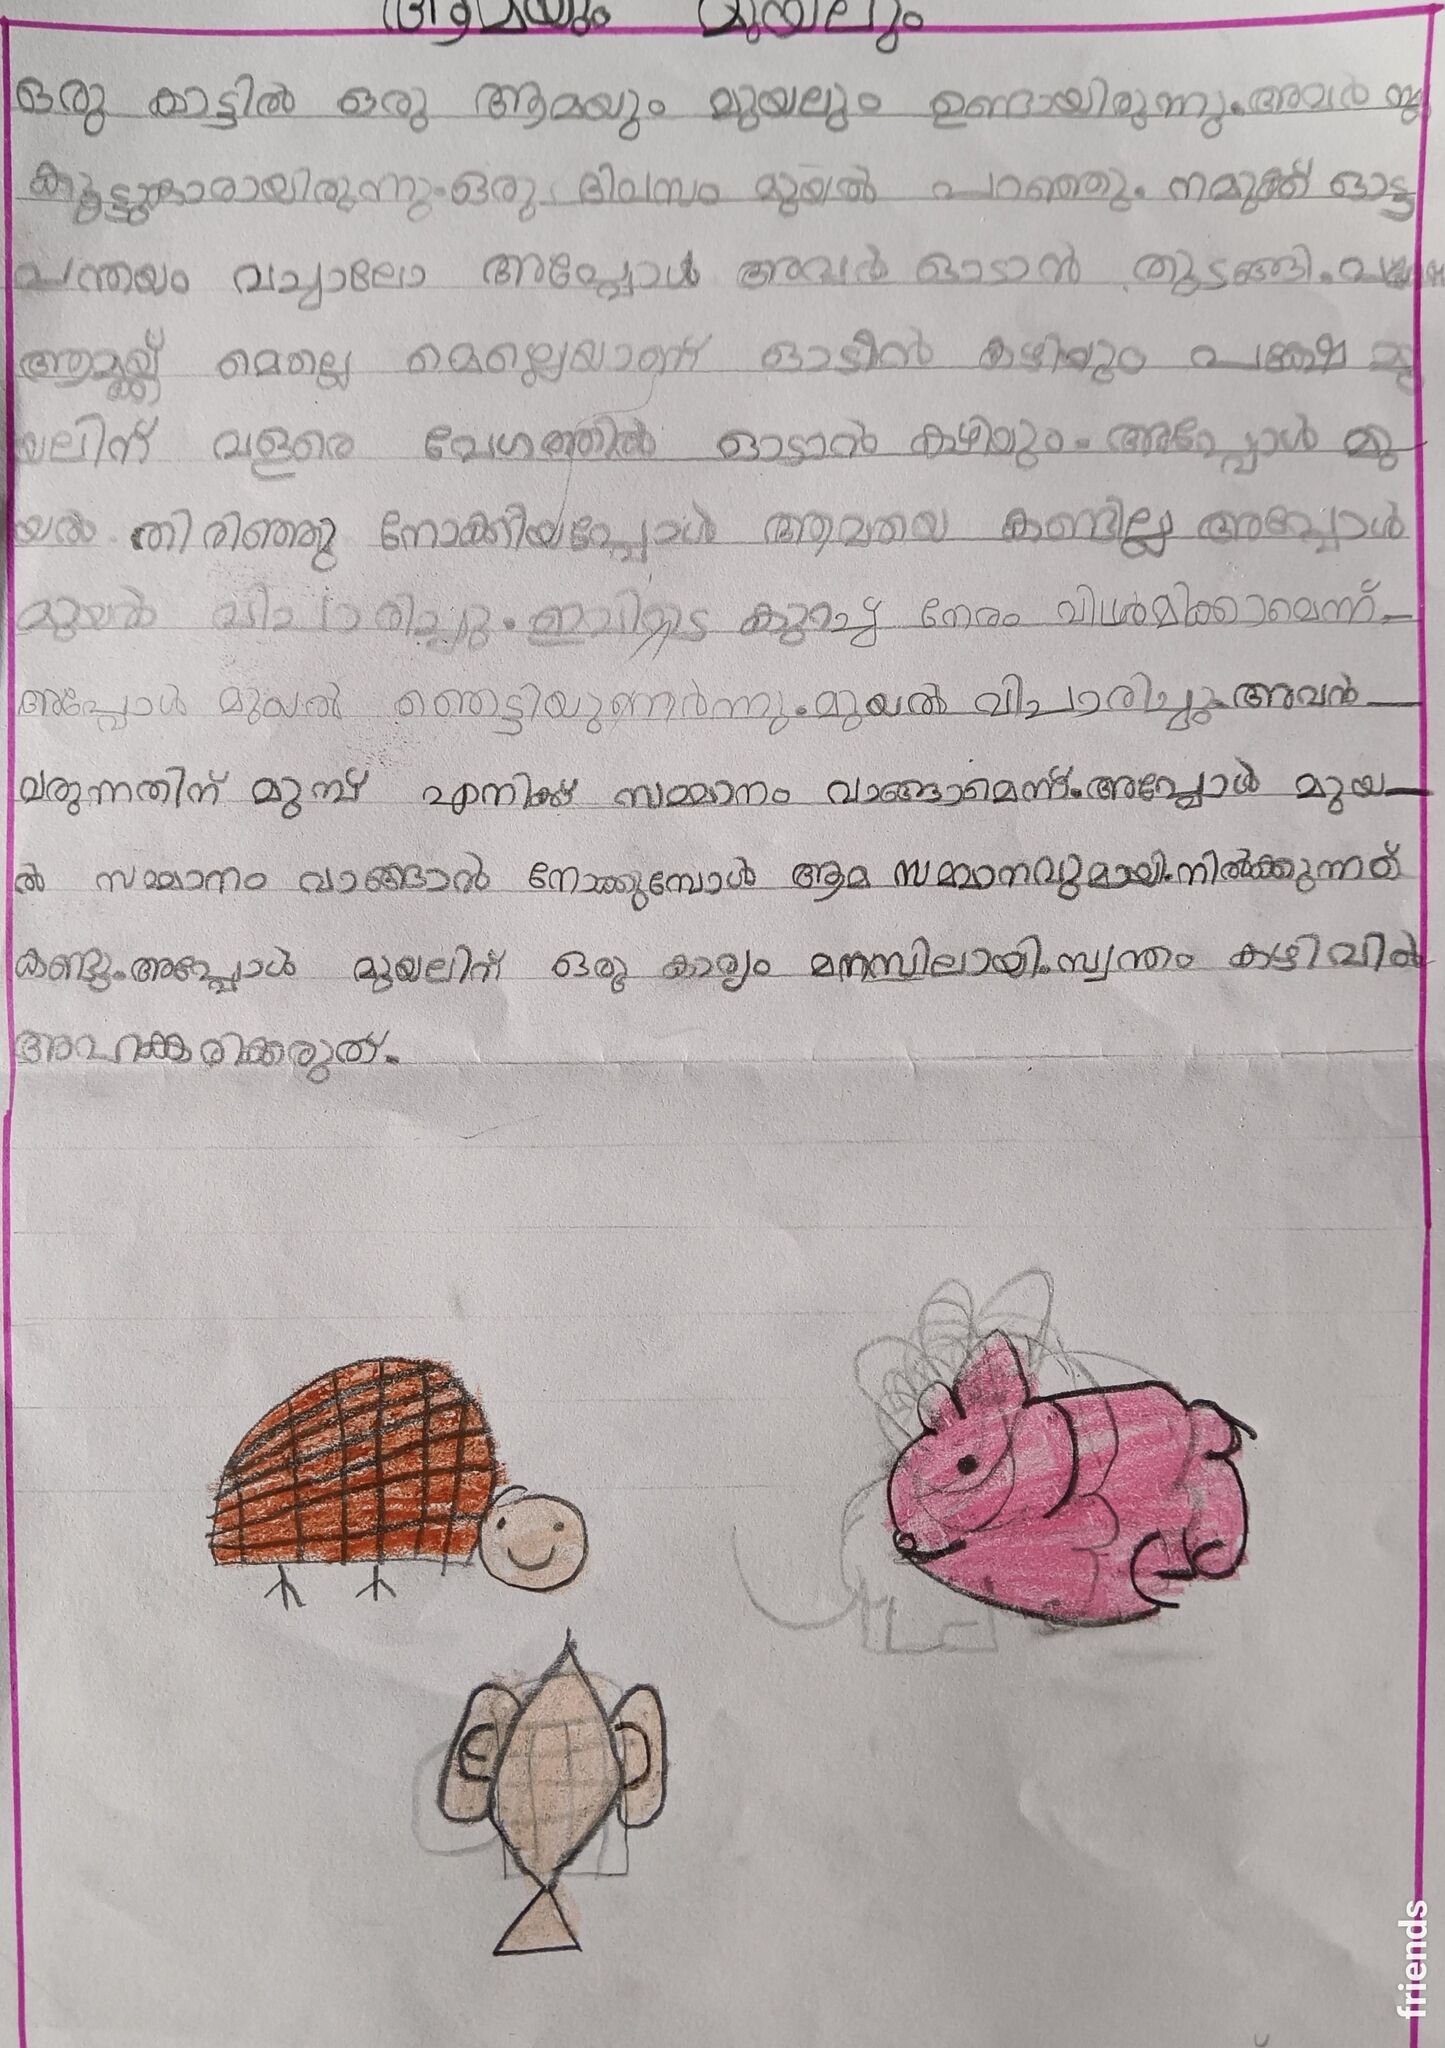 ആമയും മുയലും
ഒരു കാട്ടിൽ ഒരു ആമയും മുയലും ഉണ്ടായിരുന്നു. അവർ
കൂട്ടുകാരായിരുന്നു. ഒരു ദിവസം മുയൽ പറഞ്ഞു. നമുക്ക് ഓട്ട
പന്തയം വച്ചാലോ അപ്പോൾ അവർ ഓടാൻ തുടങ്ങി.
ആമയ്ക്ക് മെല്ലെ മെല്ലെയാണ് ഓടാൻ കഴിയും പക്ഷേ മു
യലിന് വളരെ വേഗത്തിൽ ഓടാൻ കഴിയും. അപ്പോൾ മു
യൽ തിരിഞ്ഞു നോക്കിയപ്പോൾ ആമയെ കണ്ടില്ല അപ്പോൾ
മുയൽ വിചാരിച്ചു. ഇവിടെ കുറച്ച് നേരം വിശ്രമിക്കാമെന്ന്-
അപ്പോൾ മുയൽ ഞെട്ടിയുണർന്നു. മുയൽ വിചാരിച്ചു. അവൻ
വരുന്നതിന് മുമ്പ് എനിക്ക് സമ്മാനം വാങ്ങാമെന്ന്. അപ്പോൾ മുയ-
ൽ സമ്മാനം വാങ്ങാൻ നോക്കുമ്പോൾ ആമ സമ്മാനവുമായി. നിൽക്കുന്നത്
കണ്ടു. അപ്പോൾ മുയലിന് ഒരു കാര്യം മനസിലായി. സ്വന്തം കഴിവിൽ
അഹങ്കരിക്കരുത്.
friends